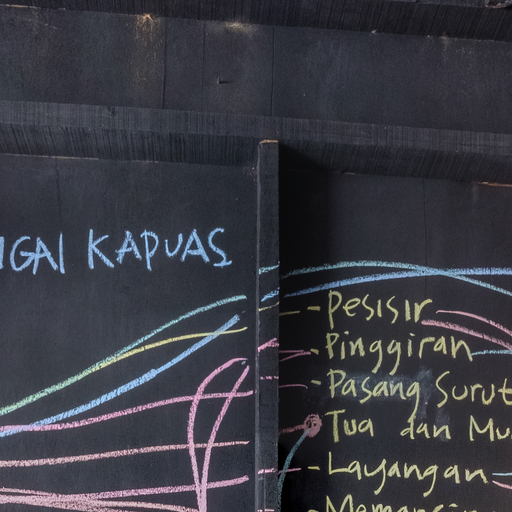 NGAI KAPUAS
- Pesisir
- Pinggiran
- Pasang Surut
- Tua dan Mu
- Layangan